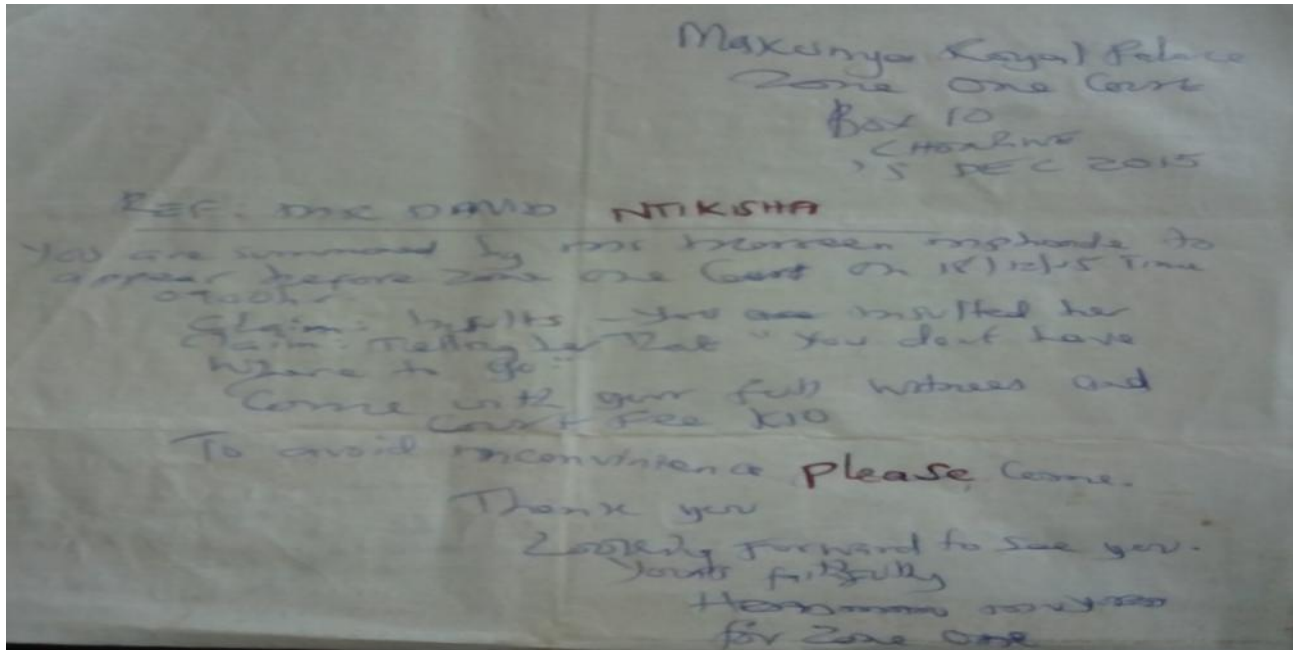 Makunya Royal Palace
Zone One Court
Box 10
15 DEC 2015
REF. MR DAVID NTIKISHA
You are summoned by to
appear before Zone one Court on 18/12/15 Time
Claim: Insults - You insulted her
Claim: Telling her That "You dont have
where to go"
Come with your full witness and
Court Fee K10
To avoid inconvinience please Come.
Thank you
Looking forward to see you.
Yours faithfully
for Zone One